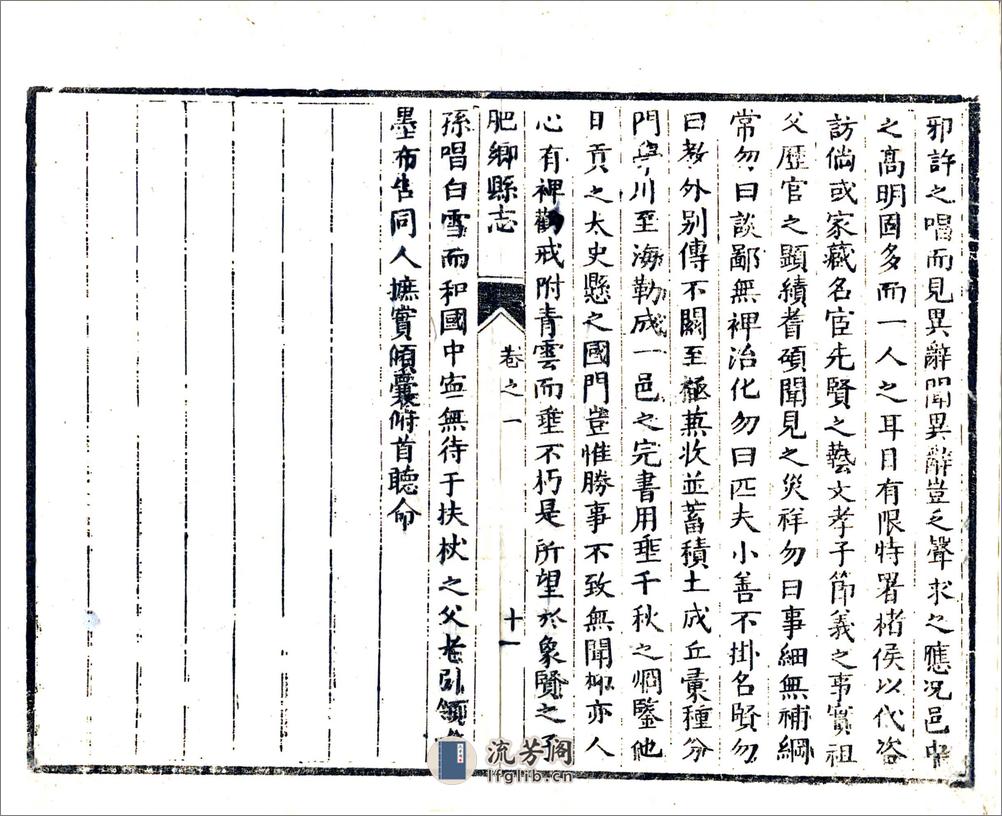 邪許之唱而見異辭聞異辭豈乏聲求之應况邑中
之高明固多而一人之耳目有限特署楮侯以代咨
訪倘或家藏名宦先賢之藝文孝子節義之事實祖
父歷官之顯績耆碩聞見之災祥勿曰事細無補綱
常勿曰談鄙無裨治化勿曰匹夫小善不掛名賢勿
曰教外別傳不關至極兼收並蓄積土成丘彙種分
門學川至海勒成一邑之完書用垂千秋之炯鑒他
日貢之太史懸之國門豈惟勝事不致無聞抑亦人
心有裨勸戒附青雲而垂不朽是所望於象賢之子
肥鄉縣志
卷之一
十一
孫唱白雪而和國中寧無待于扶杖之父老引領
墨布告同人摭實傾囊俯首聽命
流芳阁
lfglib.cn